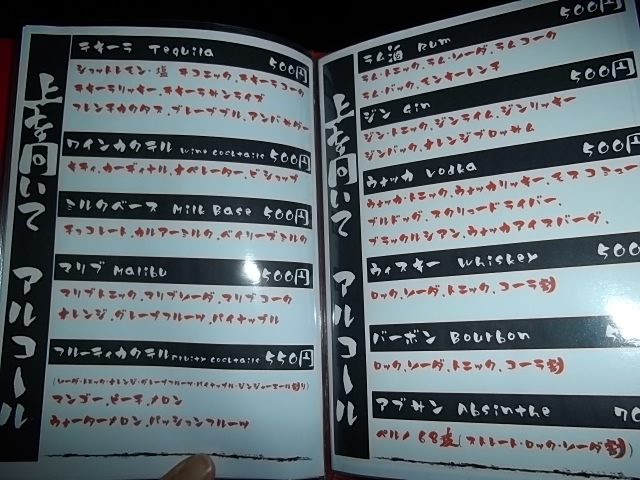 上を向いて アルコール
テキーラ Tequila 500円
ショットレモン・塩 テコニック、テキーラコーク
テキーラリッキー、テキーラサンライズ
フレンチカクタス、ブレーブブル、アンバサダー
ワインカクテル wine cocktails 500円
キティ、カーディナル、オペレーター、ビショップ
ミルクベース Milk Base 500円
チョコレート、カルアーミルク、ベイリーズミルク
マリブ Malibu 500円
マリブトニック、マリブソーダ、マリブコーク
オレンジ、グレープフルーツ、パイナップル
フルーティカクテル Fruity cocktails 550円
(ソーダ・トニック・オレンジ・グレープフルーツ・パイナップル・ジンジャーエール割り)
マンゴー、ピーチ、メロン
ウォーターメロン、パッションフルーツ
上を向いて アルコール
ラム酒 Rum 500円
ラム・トニック、ラム・ソーダ、ラムコーク
ラム・バック、
ジン Gin 500円
ジン・トニック、ジンライム、ジンリッキー
ジンバック、オレンジブロッサム
ウォッカ Vodka 500円
ウォッカ・トニック、ウォッカリッキー、モスコミュー
ブルドッグ、スクリュードライバー、
ブラックルシアン、ウォッカアイスバーグ、
ウィスキー Whiskey 500
ロック、ソーダ、トニック、コーラ割
バーボン Bourbon
ロック、ソーダ、トニック、コーラ割
アブサン Absinthe 70
ペルノ 68度(ストレート・ロック・ソーダ割)